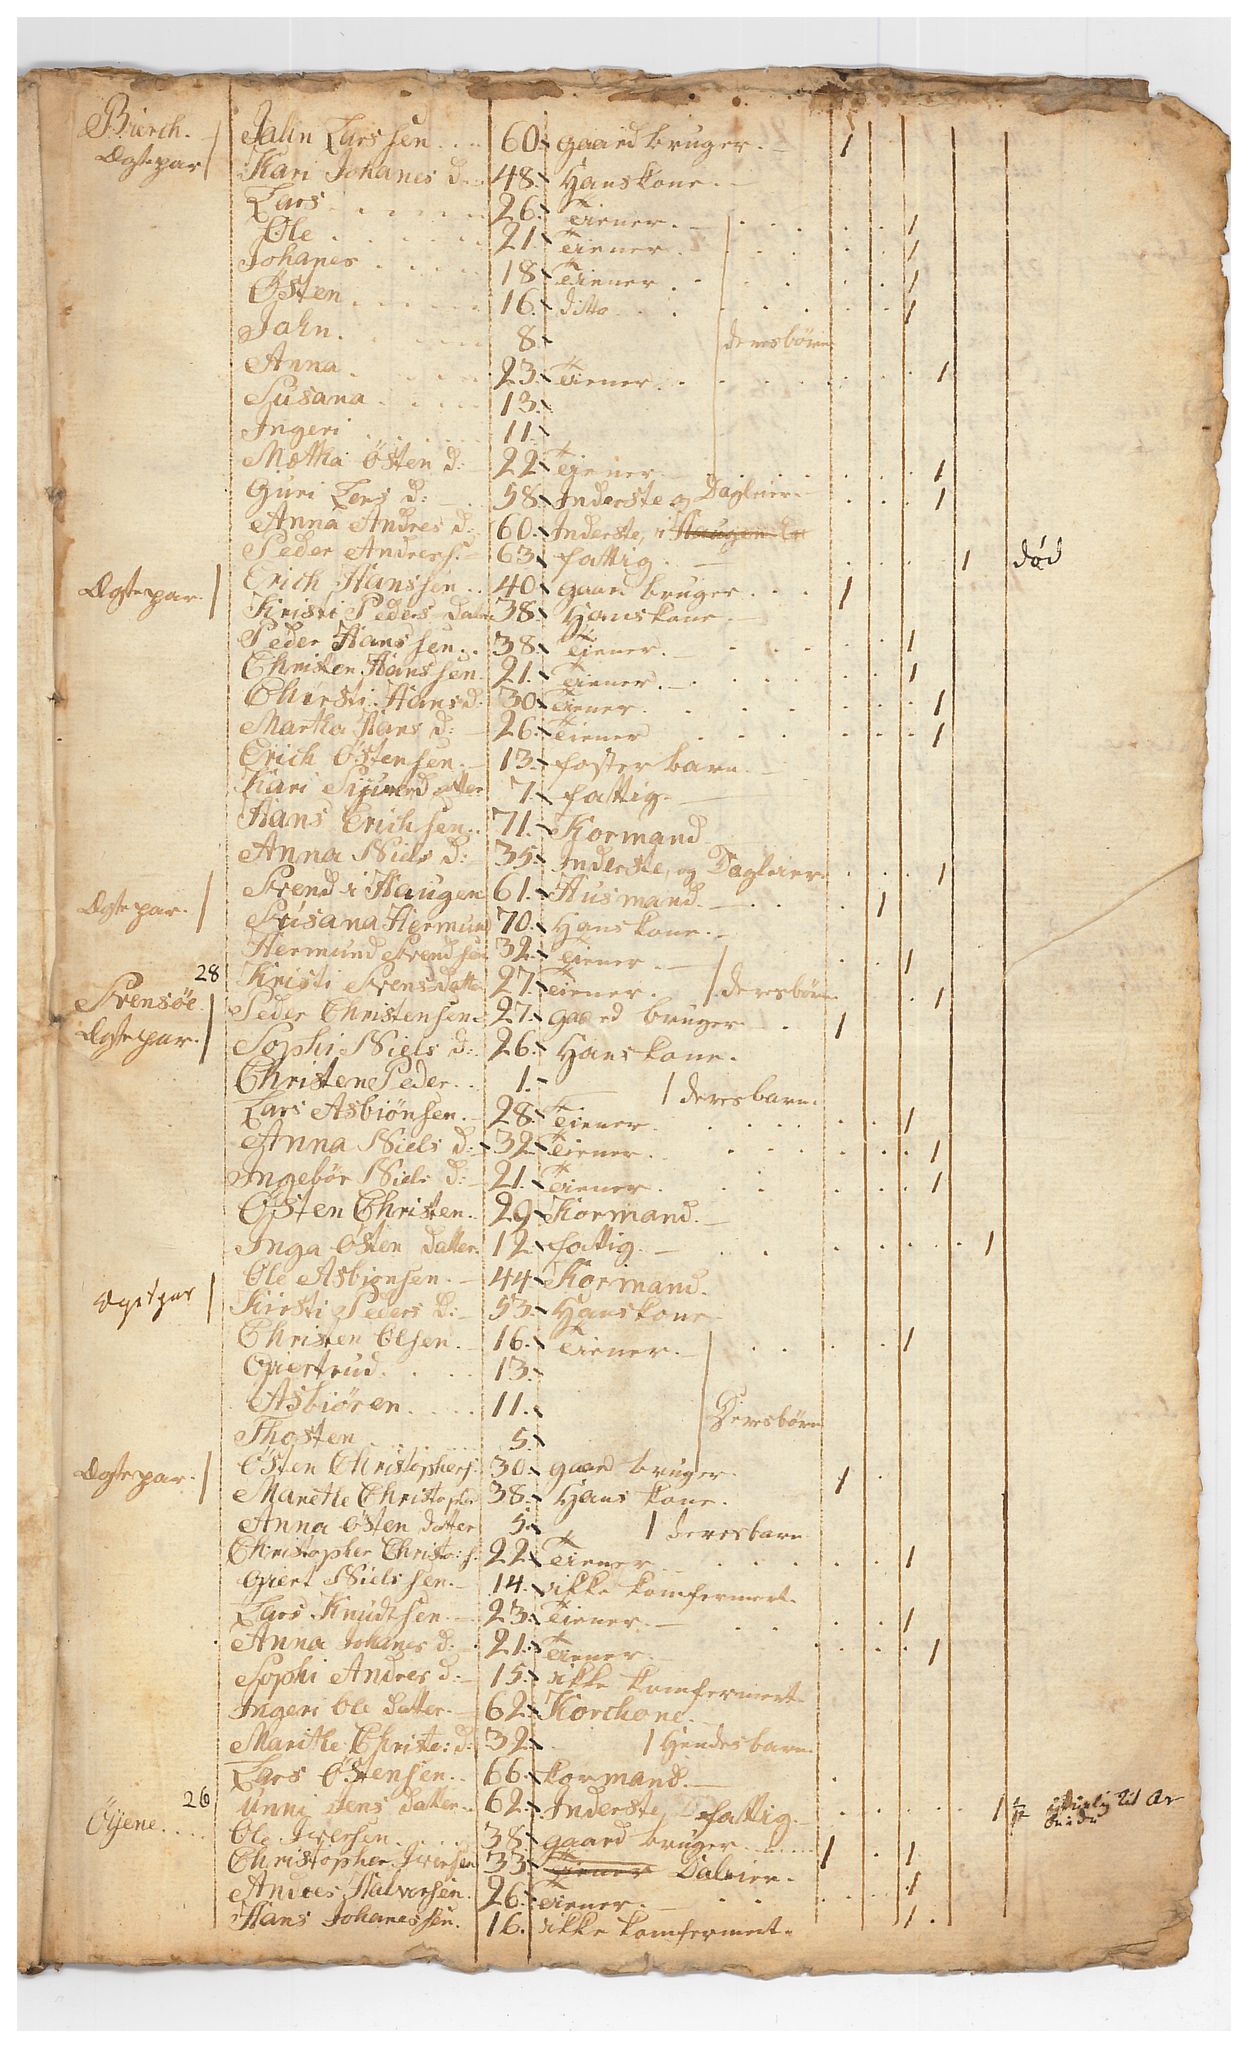 Bierch. Jahn Larssen 60 gaard bruger. 1
Ægtepar Kari Johanes d. 48. Hans kone.
Lars 26. Tiener. 1
Ole 21 Tiener. 1
Johanes 18 Tiener. 1
Østen 16. ditto 1
Jahn. 8. deres børn
Anna 23. Tiener. 1
Susana 13.
Ingeri 11.
Mætha Østen d: 22 Tiener 1
Guri Lars d: 58. Inderste og Dagleier. 1
Anna Andres d. 60. Inderste, i Haugen
Peder Anders: 63 fattig. 1 død
Ægtepar. Erich Hanssen 40 gaard bruger 1
Kristi Peders dater 38. Hans kone.
Peder Hanssen 38. Tiener. 1
Christen Hanssen. 21. Tiener. 1
Chirsti Hans d. 30 Tiener. 1
Martha Hans d: 26. Tiener 1
Erich Østensen. 13. foster barn.
Kari Sijverd datter 7. fattig.
Hans Erichsen. 71. Kormand
Anna Niels d: 35. Inderste, og Dagleier 1
Ægtepar. Svend i Haugen 61. Husmand. 1
Susana Hermund 70. Hans kone.
Hermund Svendsen 32. Tiener. 1
28 Kristi Svens datter 27. Tiener. deres børn 1
Svensøe. Peder Christensen. 27. gaard bruger. 1
Ægtepar. Sophi Niels d: 26. Hans kone.
Christen Peder 1. deres barn.
Lars Asbiønsen. 28 Tiener. 1
Anna Niels d: 32 Tiener. 1
Ingebør Niels d: 21. Tiener. 1
Østen Christen. 29 Kormand.
Inga Østen datter. 12. fattig. 1
Ole Asbiønsen. 44 Kormand.
Ægtepar Kirsti Peders d: 53. Hans kone
Christen Olsen. 16. Tiener. 1
Giertrud. 13.
Asbiøren 11. Deres børn
Thosten 5.
Ægtepar. Østen Christophers. 30. gaard bruger. 1
Marethe Christopher 38. Hans kone.
Anna Østen datter 5. deres barn
Christopher Christo:s. 22. Tiener 1
Giert Nielssen. 14. ikke komfermert.
Lars Knudtsen. 23. Tiener. 1
Anna Johanes d. 21. Tiener. 1
Sophi Andres d. 15. ikke komfermert.
Ingeri Ole datter. 62. Korchone.
Marithe Christe: d: 32. Hendes barn.
Lars Østensen. 66. kormand.
26 Unni Jens datter. 62. Inderste, fattig. 1
Øyene. Ole Iversen. 38. gaard bruger 1 1
Christopher Iversen 33. Tiener Daleier.
Andres Halvorsen. 26. Tiener. 1
Hans Johanessen. 16. ikke komfermert. 1